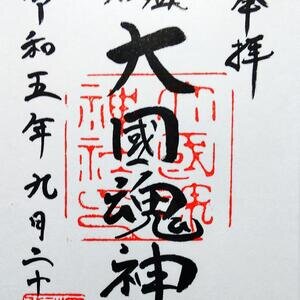 奉拝
大國魂神
令和五年九月二十